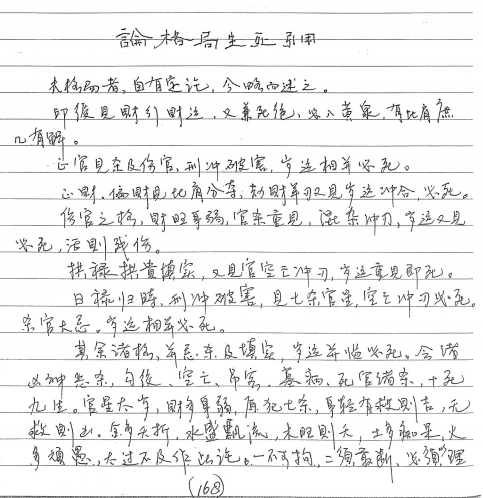 論格局生死引用
夫格局者，自有定论，今略而述之。
印绶見財行財运，又兼死绝，必入黄泉，有比肩庶
几有解。
正官見杀及伤官，刑冲破害，岁运相并必死。
正财、偏财見比肩分夺，劫财羊刃又見岁运冲合，必死。
伤官之格，财旺身弱，官杀重見，混杂冲刃，岁运又見
必死，活則残伤。
拱禄拱贵填实，又見官空亡冲刃，岁运重見即死。
日禄归時，刑冲破害，見七杀官星，空亡冲刃必死。
杀官大忌，岁运相并必死。
其余诸格，并忌杀及填实，岁运并临必死。会诸
凶神恶杀，勾绞、空亡、吊客、墓病、死官诸杀，十死
九生。官星太岁，财多身弱，原犯七杀，身轻有救則吉，无
救則凶。金多夭折，水盛飘流，木旺則夭，土多痴呆，火
多顽愚，太过不及作此论。一不可拘，二须敢断，必须理
(168)